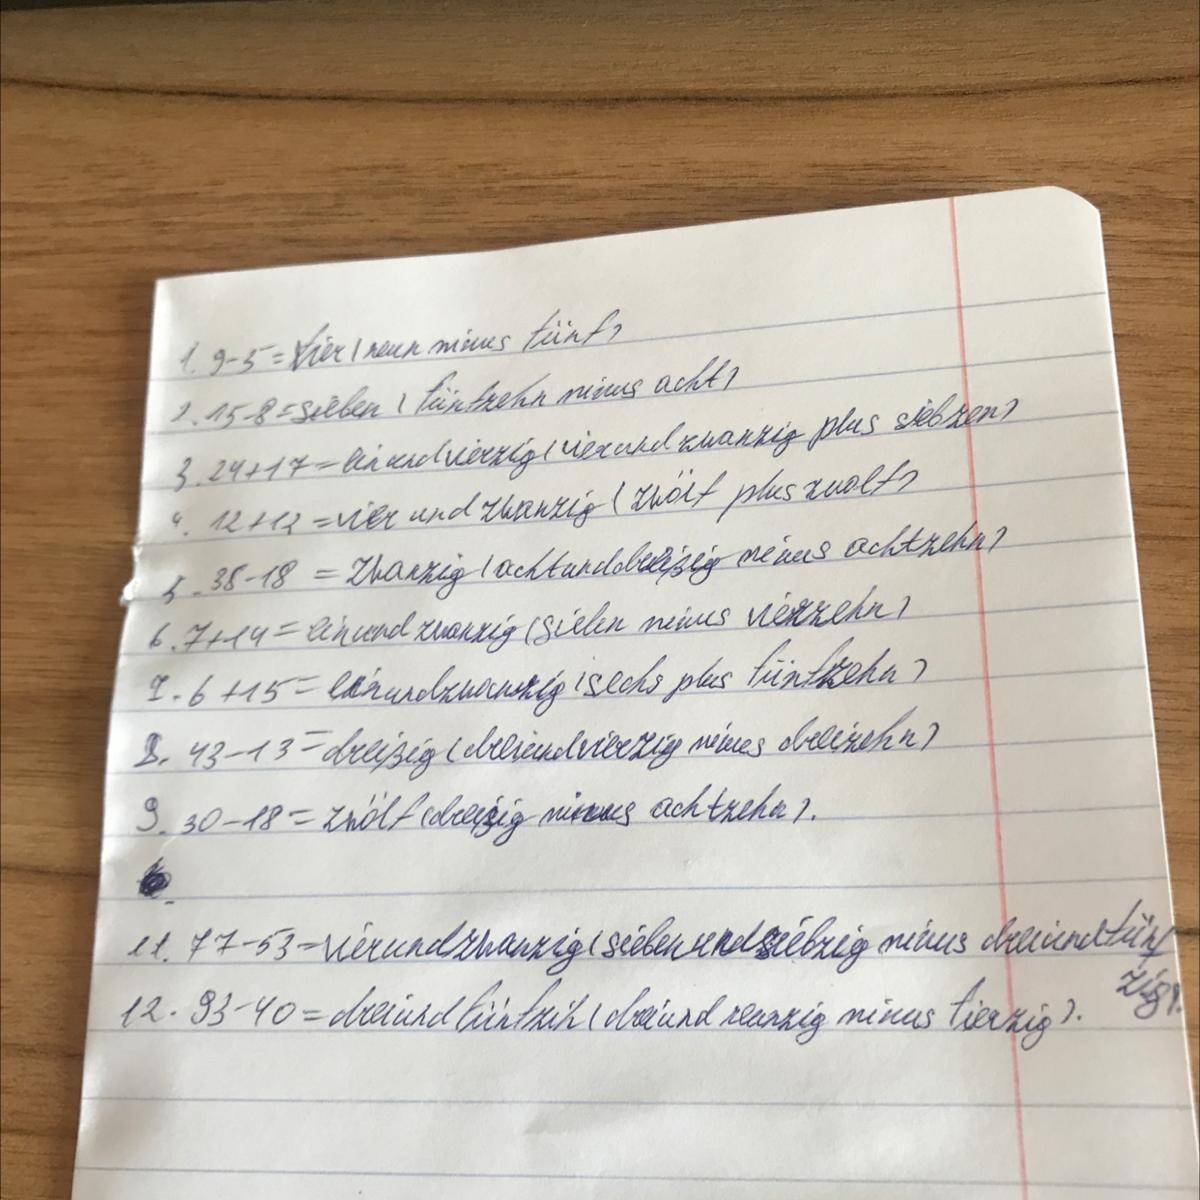 1. 9-5=vier(neun minus fünf)
2. 15-8=sieben (fünfzehn minus acht)
3. 24+17=einundvierzig(vierundzwanzig plus siebzen)
4. 12+12=vier und zwanzig (zwölf plus zwolf)
5. 38-18 = zwanzig (achtunddreißig minus achtzehn)
6. 7+14=einundzwanzig (sieben minus vierzehn)
7. 6+15=einundzwanzig (sechs plus fünfzehn)
8. 43-13=dreißig (dreiundvierzig minus dreizehn)
9. 30-18=zwölf (dreißig minus achtzehn).
11. 77-53=vierundzwanzig (siebenundsiebzig minus dreiundfünf
zig).
12. 93-40=dreiundfünfzih (dreiund neunzig minus fierzig).